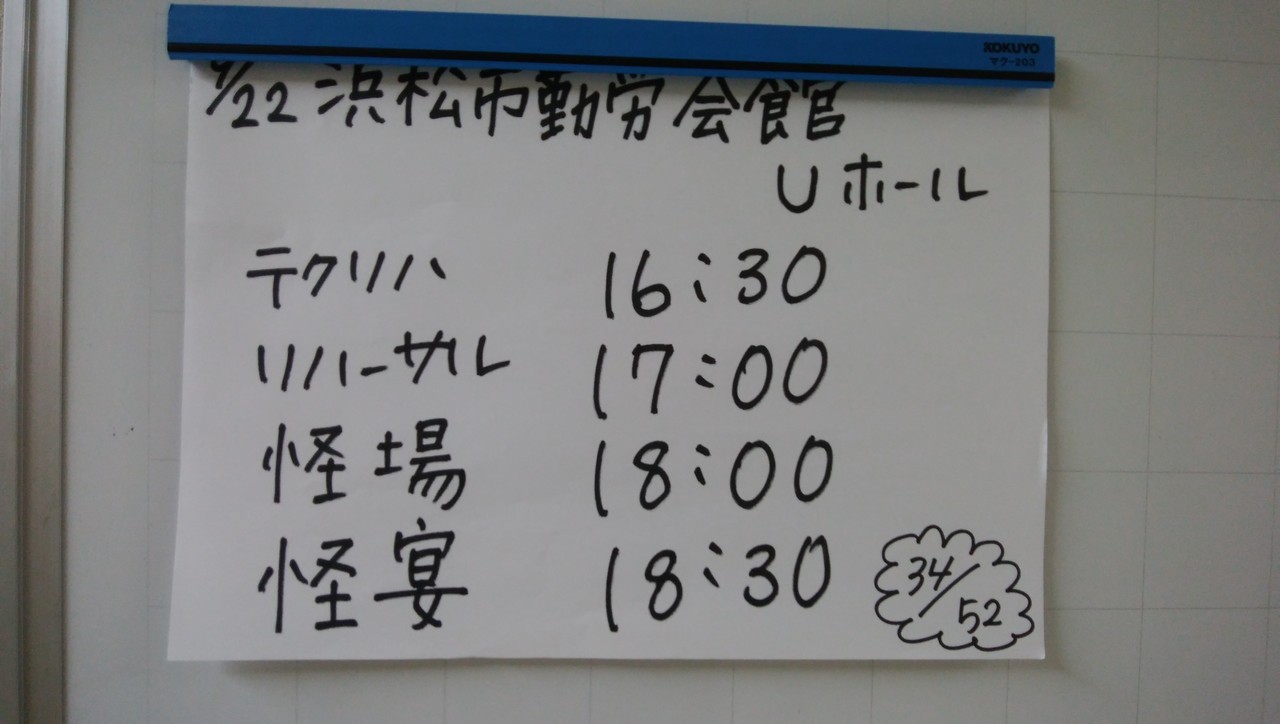 KOKUYO
マク-203
/22 浜松市勤労会食官
Uホール
テクリハ 16:30
リハーサル 17:00
怪場 18:00
怪宴 18:30
34/52